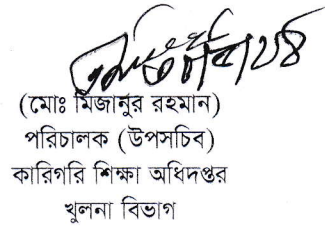 (মোঃ মিজানুর রহমান)
পরিচালক (উপসচিব)
কারিগরি শিক্ষা অধিদপ্তর
খুলনা বিভাগ